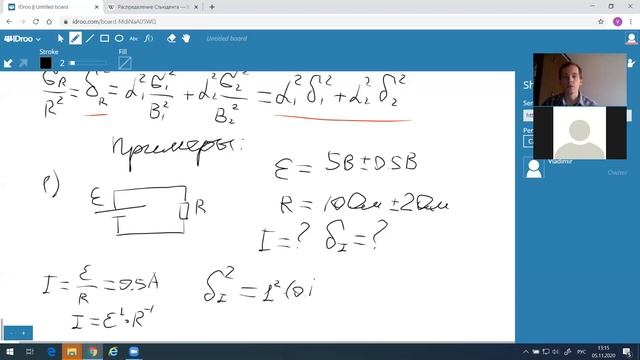 IDroo || Untitled board
Распределение Стьюдента — 
idroo.com/board-MdiNaA05WQ
IDroo
Untitled board
Stroke
Black
2
σ_R²/R² = δ_R² = α₁² σ₁²/B₁² + α₂² σ₂²/B₂² = α₁² δ₁² + α₂² δ₂²
Примеры:
1)
ε
R
ε = 5В ± 0.5В
R = 10 Ом ± 2 Ом
I = ? δ_I = ?
I = ε/R = 0.5А
δ_I² = 1² (0.
I = ε¹·R⁻¹
Vladimir
РУС
13:15
05.11.2020